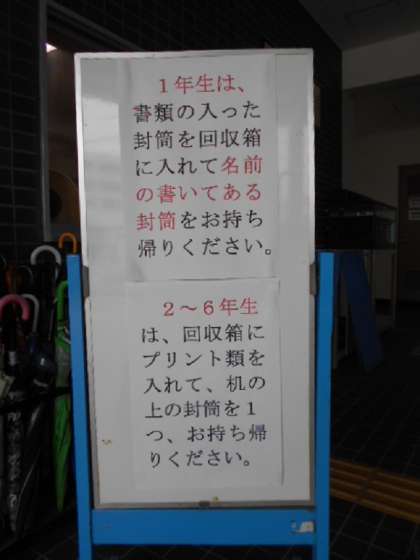 1年生は、
書類の入った
封筒を回収箱
に入れて名前
の書いてある
封筒をお持ち
帰りください。
2～6年生
は、回収箱に
プリント類を
入れて、机の
上の封筒を1
つ、お持ち帰
りください。